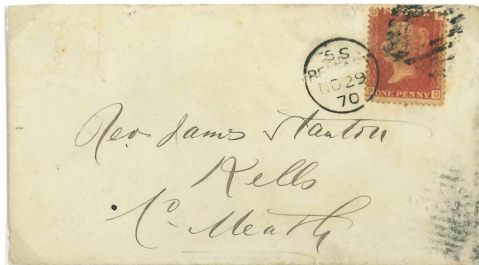 S.S
NO 29
70
ONE PENNY
Rev James Stanton
Kells
Co Meath